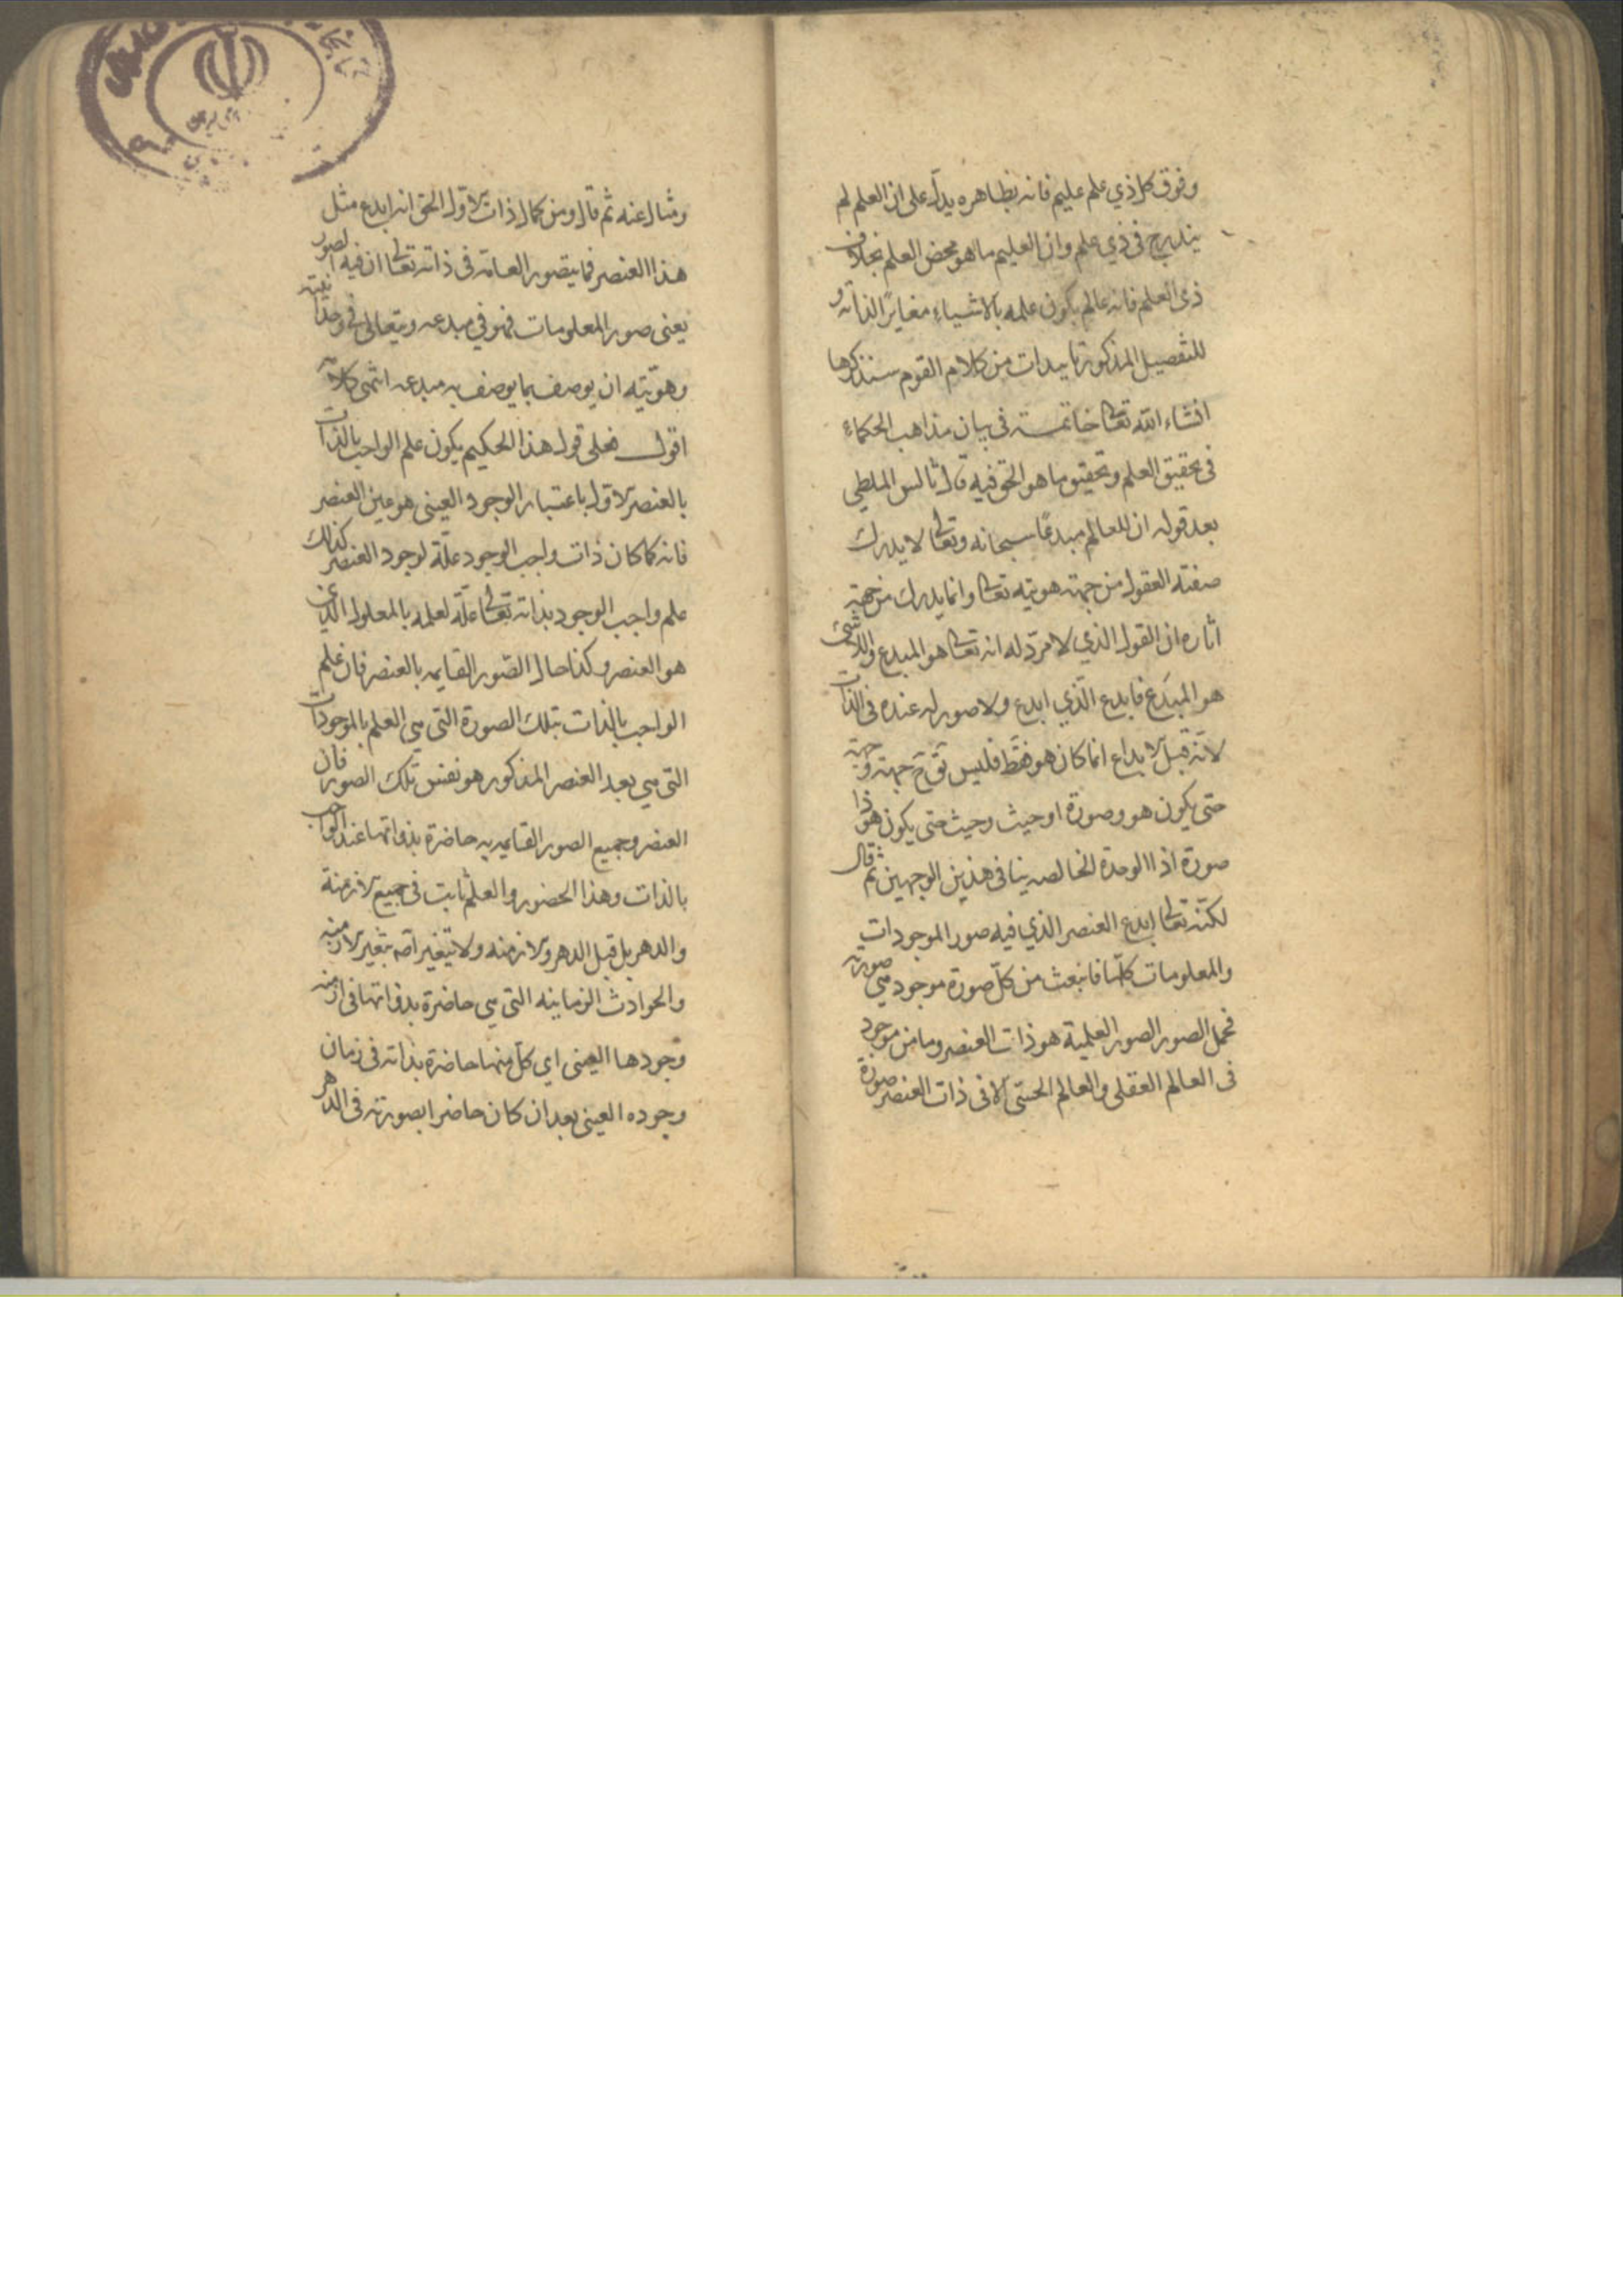 وفوق كل ذي علم عليم فانه بظاهره يدل على ان العلم لم
يندرج في ذي علم وان العليم ما هو محض العلم بخلاف
ذي العلم فانه عالم يكون علمه بالاشياء مغايرا لذاته و
للتفصيل المذكور تاييدات من كلام القوم سنذكرها
انشاء الله تعالى خاتمة في بيان مذاهب الحكماء
في تحقيق العلم وتحقيق ما هو الحق فيه قال ثالس الملطي
بعد قوله ان للعالم مبدعًا سبحانه وتعالى لا يدرك
صفته العقول من جهة هويته تعالى وانما يدرك من جهة
اثاره ان القول الذي لا مردّ له انه تعالى هو المبدع واللاشئ
هو المبدَع فابدع الّذي ابدع ولا صورة له عنده في الذات
لانّه قبل الابداع انما كان هو فقط فليس ثَمّ جهة وجهة
حتى يكون هو وصورة او حيث وحيث حتى يكون هو ذا
صورة اذ الوحدة الخالصه ينافى هذين الوجهين ثم قال
لكنّه تعالى ابدع العنصر الذي فيه صور الموجودات
والمعلومات كلّها فانبعث من كلّ صورة موجود هي صورته
فمحل الصور الصور العلمية هو ذات العنصر وما من موجود
في العالم العقلي والعالم الحسّي الا في ذات العنصر صورة
ومثال عنه ثم قال ومن كمال ذات الاول الحق انه ابدع مثل
هذا العنصر فما يتصور العامة في ذاته تعالى ان فيه الصور
يعنى صور المعلومات فهو في مبدعه ويتعالى في وحدانيته
وهويّته ان يوصف بما يوصف به مبدعه انتهى كلامه
اقول فعلى قول هذا الحكيم يكون علم الواجب بالذات
بالعنصر الاول باعتبار الوجود العينى هو عين العنصر
فانه كما كان ذات واجب الوجود علّة لوجود العنصر كذلك
علم واجب الوجود بذاته تعالى علّة لعلمه بالمعلول الذي
هو العنصر وكذا حال الصّور القايمه بالعنصر فان علم
الواجب بالذات بتلك الصورة التي هي العلم بالموجودات
التى هي بعد العنصر المذكور هو نفس تلك الصور فان
العنصر وجميع الصور القايمه به حاضرة بذواتها عند الواجب
بالذات وهذا الحضور والعلم ثابت في جميع الازمنة
والدهر بل قبل الدهر والازمنه ولا يتغير اصه بتغير الازمنه
والحوادث الزمانيه التى هي حاضرة بذواتها فى ازمنه
وجودها العينى اي كلّ منها حاضرة بذاته فى زمان
وجوده العينى بعد ان كان حاضرا بصورته فى الدهر